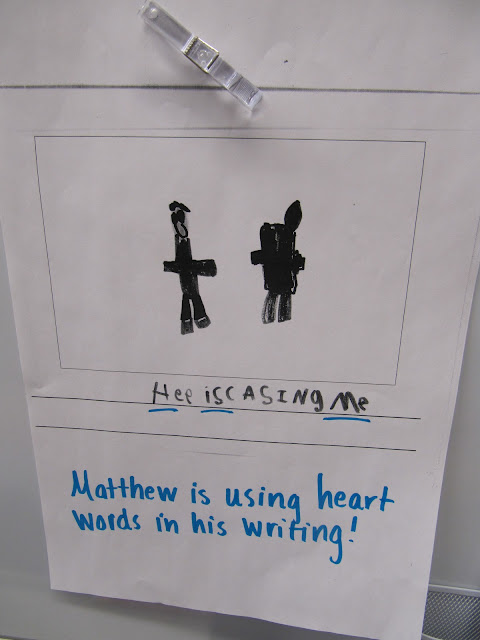 Hee is CASING Me
Matthew is using heart
words in his writing!